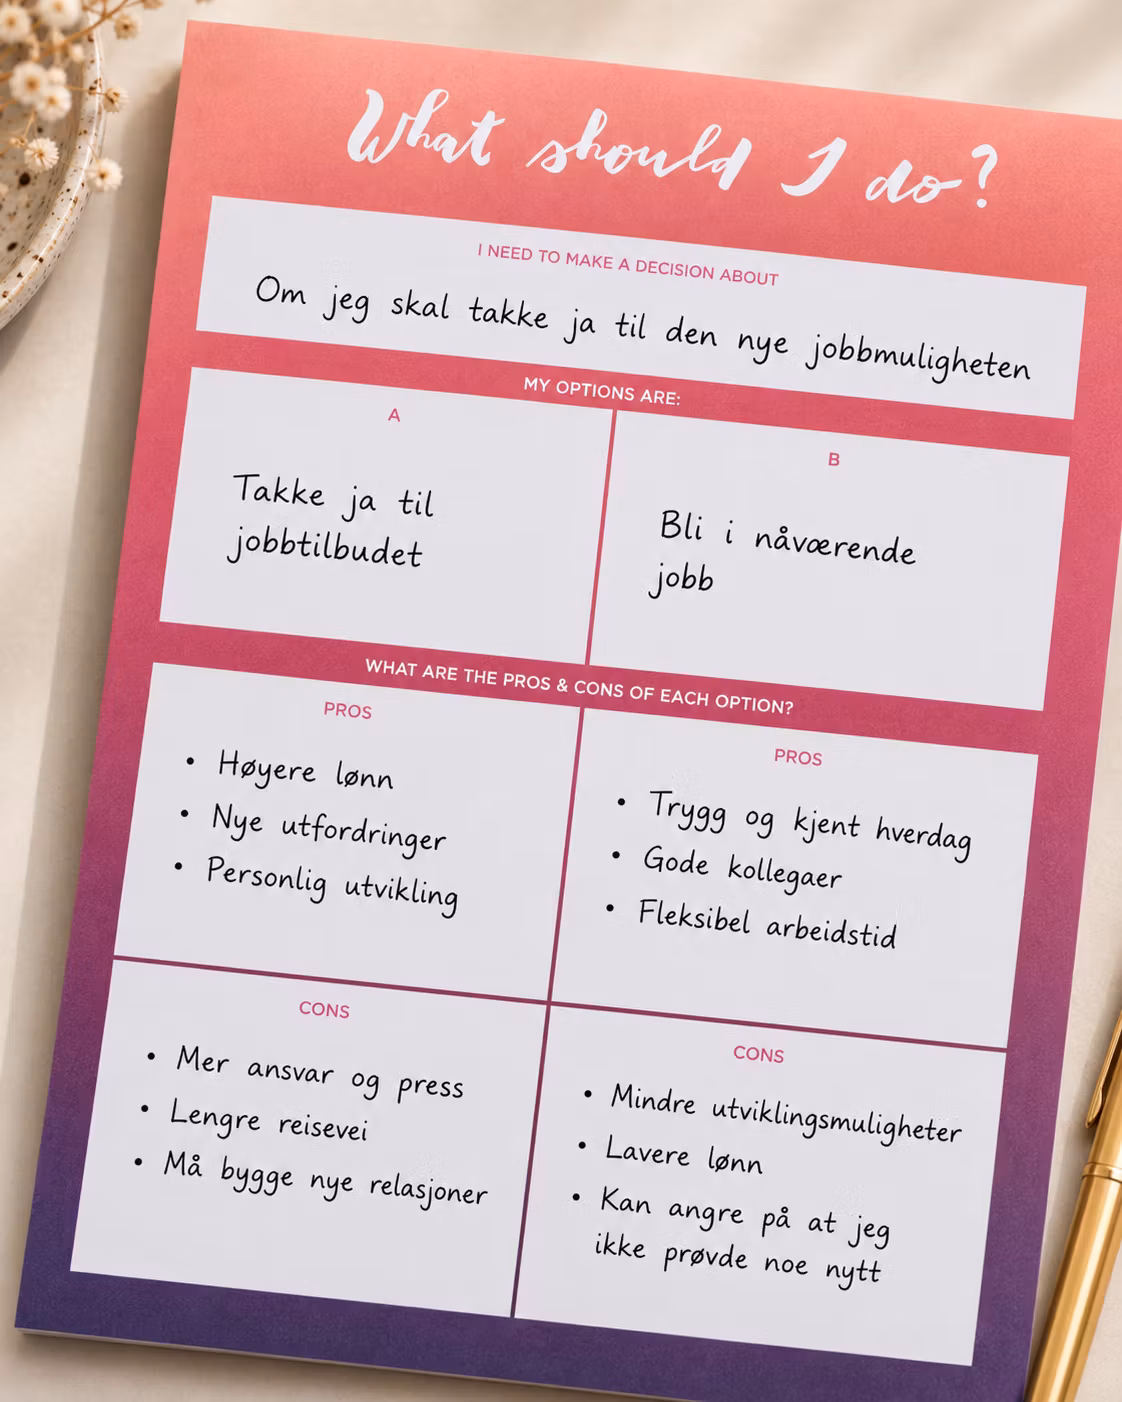 What should I do?
I NEED TO MAKE A DECISION ABOUT
Om jeg skal takke ja til den nye jobbmuligheten
MY OPTIONS ARE:
A
Takke ja til
jobbtilbudet
B
Bli i nåværende
jobb
WHAT ARE THE PROS & CONS OF EACH OPTION?
PROS
• Høyere lønn
• Nye utfordringer
• Personlig utvikling
PROS
• Trygg og kjent hverdag
• Gode kollegaer
• Fleksibel arbeidstid
CONS
• Mer ansvar og press
• Lengre reisevei
• Må bygge nye relasjoner
CONS
• Mindre utviklingsmuligheter
• Lavere lønn
• Kan angre på at jeg
ikke prøvde noe nytt